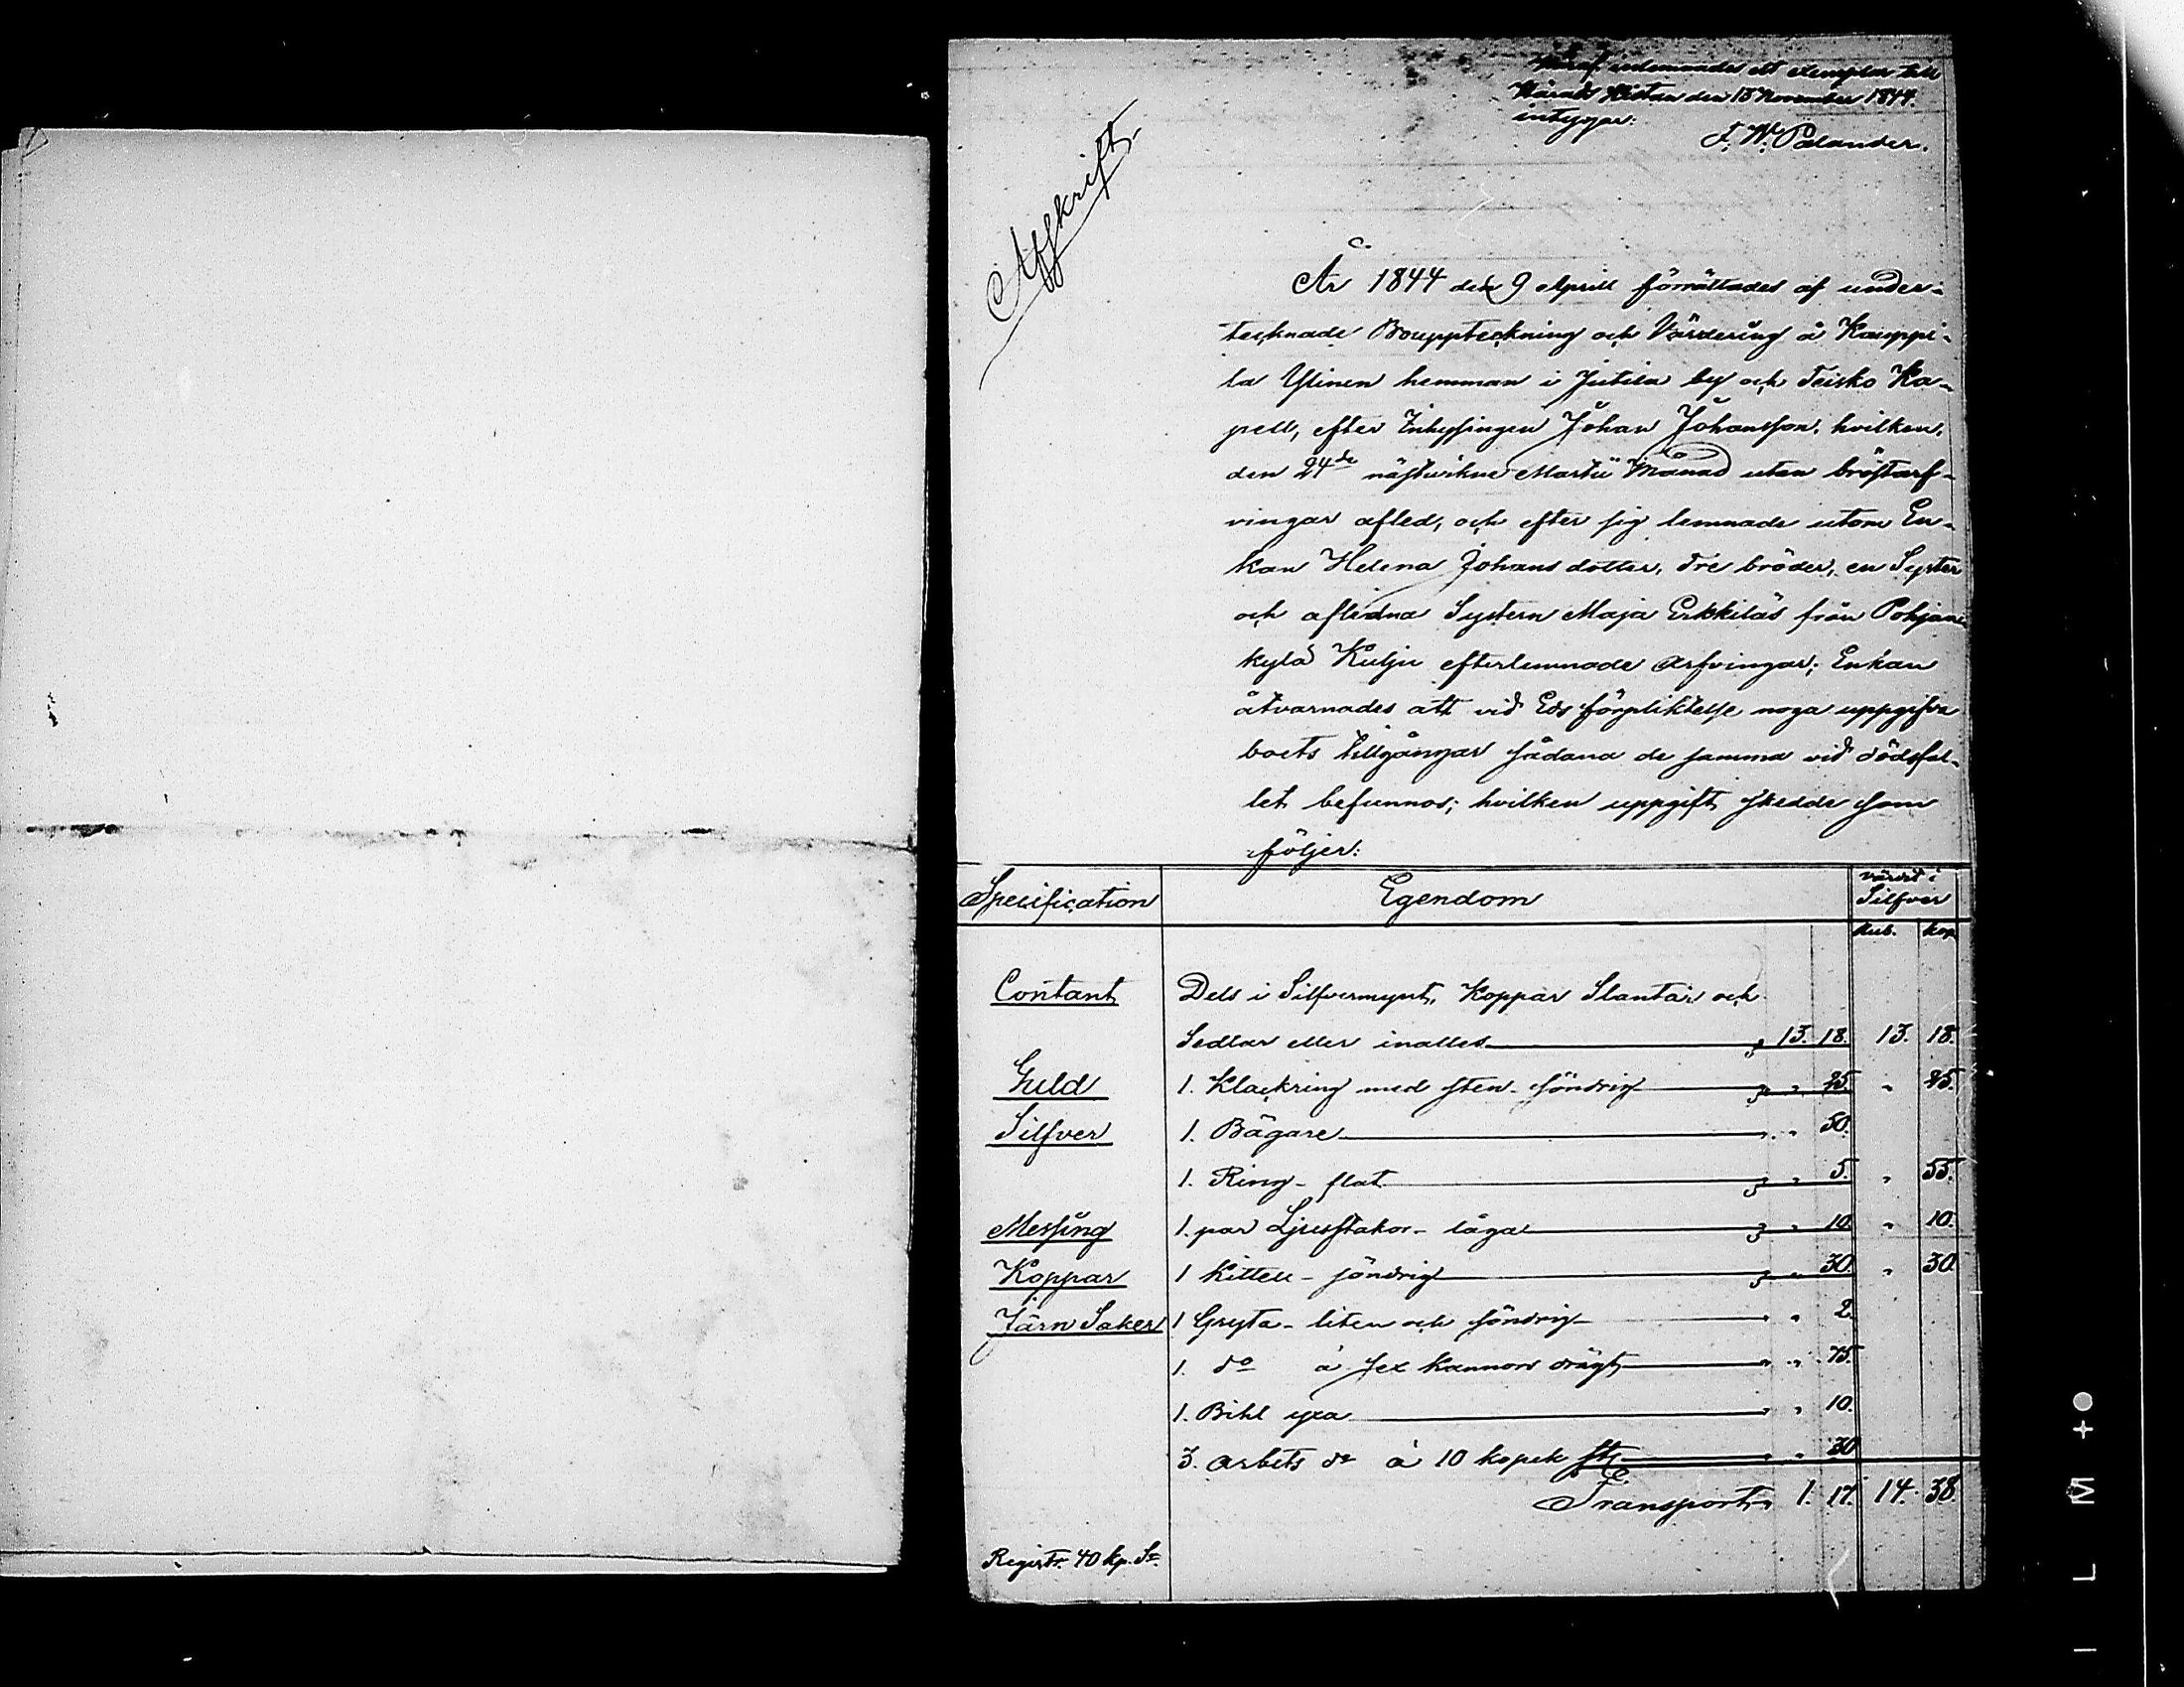 Häraf inlemnades ett exemplar till
Härads Kistan den 15 November 1844.
intygar:
F. W. Palander.
Affskrift
År 1844 den 9 Aprill förrättades af under-
tecknade Bouppteckning och Värdering å Kauppi-
la Ylinen hemman i Jutila by och Teisko Ka-
pell, efter Inhysingen Johan Johansson, hvilken,
den 24de nästvikne Martii Månad utan bröstarf-
vingar afled, och efter sig lemnade utom En-
kan Helena Johansdotter, Tre bröder, en Syster
och aflidna Systern Maja Erkkiläs från Pohjan
kylä Kulju efterlemnade Arfvingar; Enkan
åtvarnades att vid Eds förpliktelse noga uppgifva
boets tillgångar sådana de samma vid dödsfal-
let befunnos; hvilken uppgift skedde som
följer:
Specification Egendom värde i Silfver
Rub. kop
Contant Dels i Silfvermynt, Koppar Slantar och
Sedlar eller inalles „ 13. 18. 13. 18.
Guld 1. Klackring med sten- söndrig „ „ 25. „ 25.
Silfver 1. Bägare „ „ 50.
1. Ring- flat „ „ 5. „ 55.
Messing 1. par Ljusstakor- låga „ „ 10. „ 10.
Koppar 1 Kittell- söndrig „ „ 30. „ 30.
Järn Saker 1 Gryta- liten och söndrig „ „ 2.
1. do å sex kannors drägt „ „ 75.
1. Bihl yxa „ „ 10.
3. arbets do à 10 kopek st. „ „ 30
Transport „ 1. 17. 14. 38.
Registr. 40 kp. Sr.
I L M